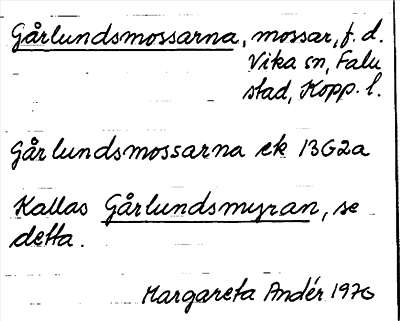 Gårlundsmossarna, mossar, f. d.
Vika sn, Falu
stad, Kopp. l.
Gårlundsmossarna ek 13G2a
Kallas Gårlundsmyran, se
detta.
Margareta Andér 1970